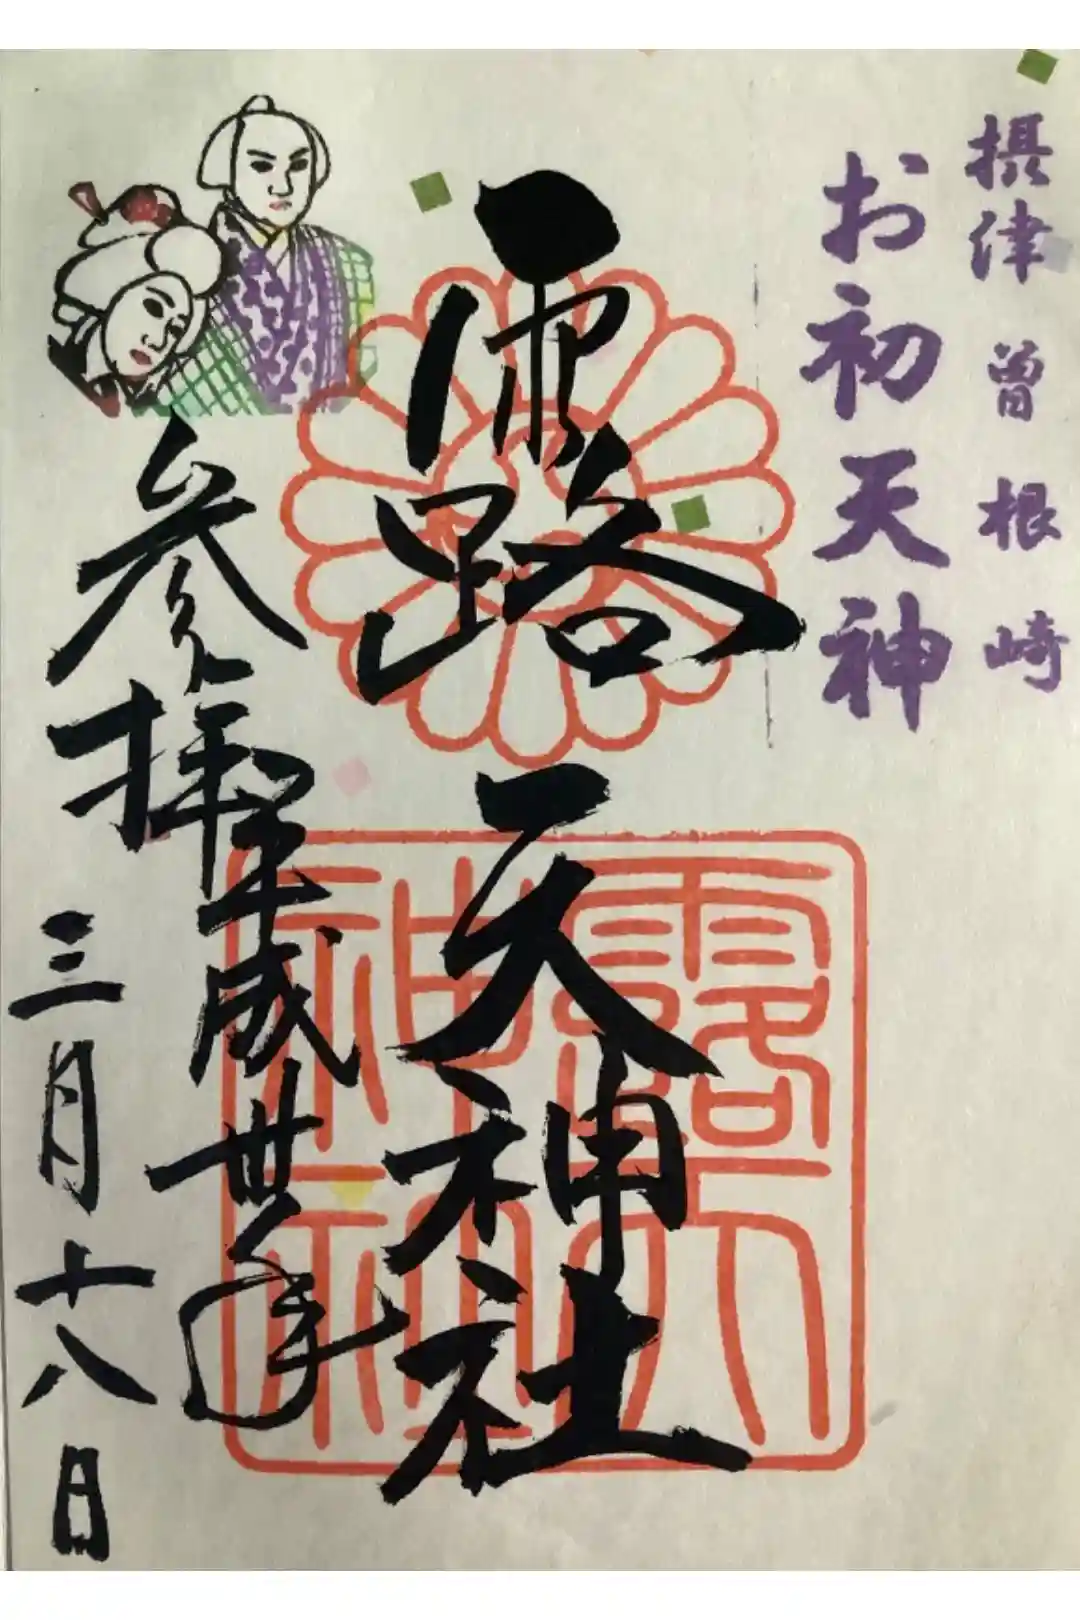 摂津 曽根崎
お初天神
露路天神社
露天神社
参拝
平成卅一年
三月十八日